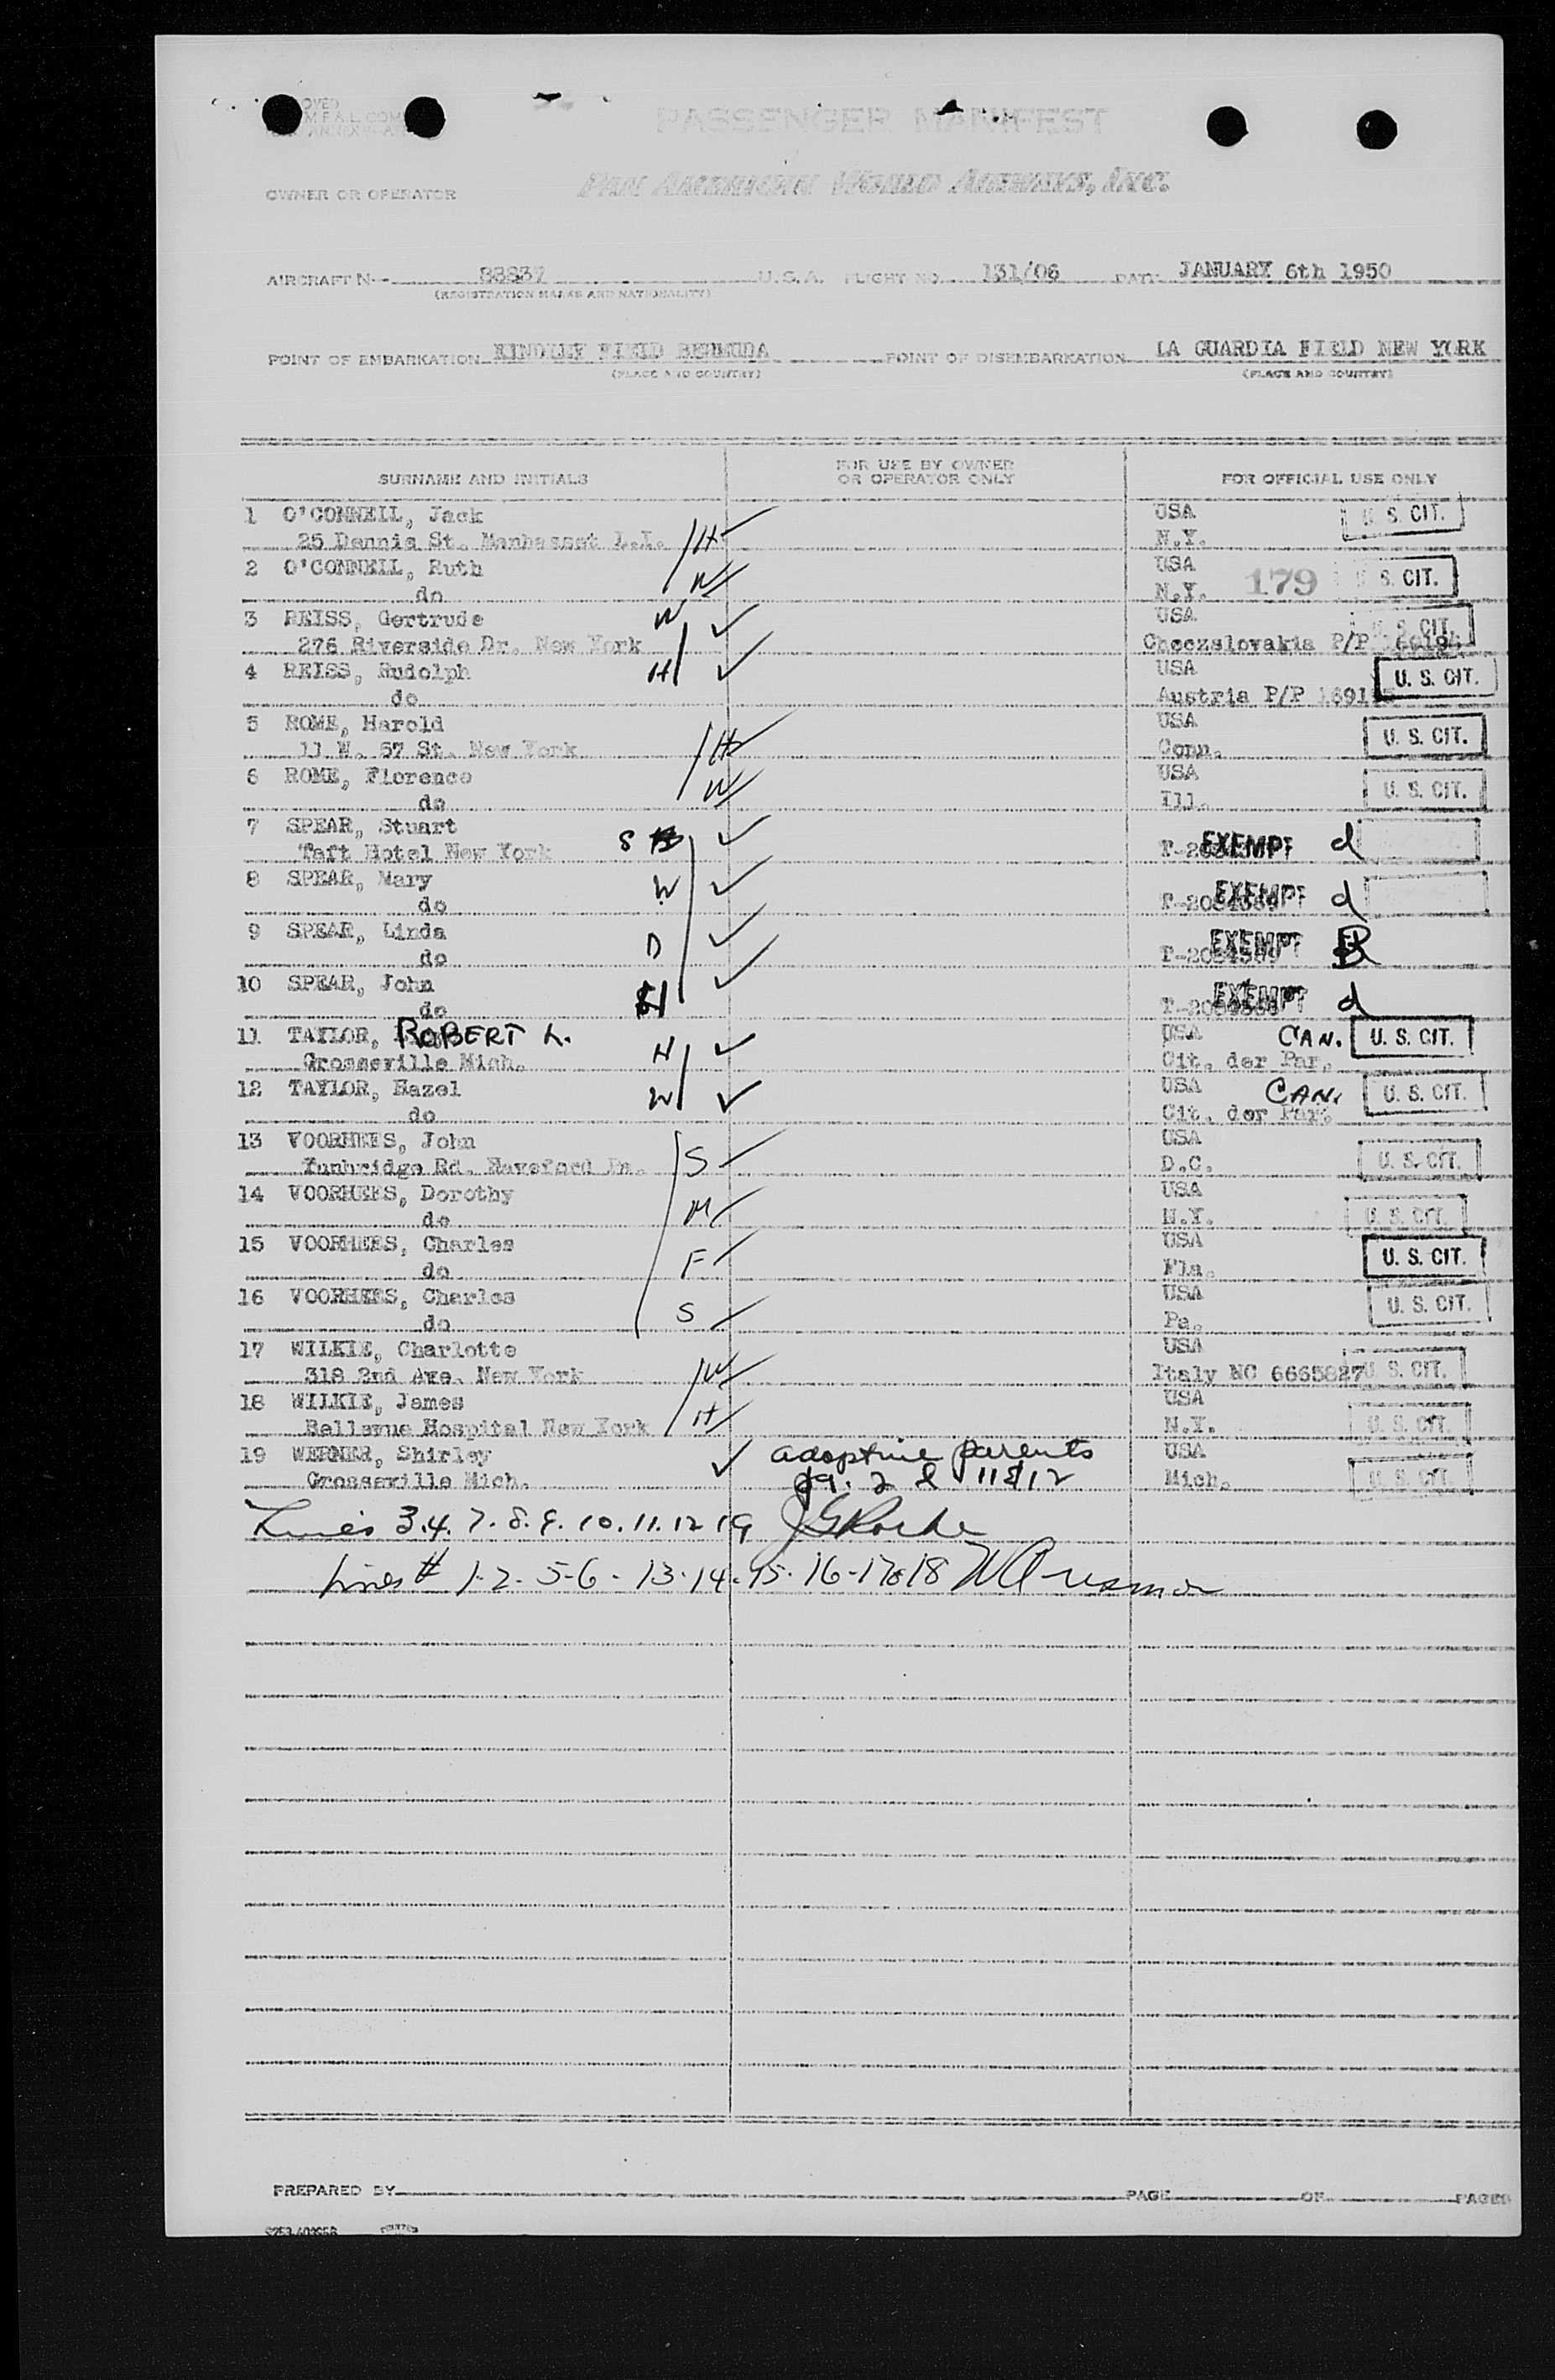 PASSENGER MANIFEST
OWNER OR OPERATOR PAN AMERICAN WORLD AIRWAYS, INC.
AIRCRAFT N-- 88837 U.S.A. FLIGHT NO. 131/06 DATE JANUARY 6th 1950
(REGISTRATION MARKS AND NATIONALITY)
POINT OF EMBARKATION KINDLEY FIELD BERMUDA POINT OF DISEMBARKATION LA GUARDIA FIELD NEW YORK
(PLACE AND COUNTRY) (PLACE AND COUNTRY)
SURNAME AND INITIALS FOR USE BY OWNER OR OPERATOR ONLY FOR OFFICIAL USE ONLY
1 O'CONNELL, Jack USA U. S. CIT.
25 Dennis St. Manhasset L.I. H N.Y.
2 O'CONNELL, Ruth USA U. S. CIT.
do W N.Y. 179
3 REISS, Gertrude W USA U. S. CIT.
276 Riverside Dr. New York Checzslovakia P/P
4 REISS, Rudolph H USA U. S. CIT.
do Austria P/P
5 ROME, Harold USA U. S. CIT.
11 W. 57 St. New York H Conn.
6 ROME, Florence USA U. S. CIT.
do W Ill.
7 SPEAR, Stuart S EXEMPT d
Taft Hotel New York
8 SPEAR, Mary W EXEMPT d
do
9 SPEAR, Linda D EXEMPT
do
10 SPEAR, John EXEMPT d
do
11 TAYLOR, ROBERT L. H USA CAN. U. S. CIT.
Grosseville Mich. Cit. der Par.
12 TAYLOR, Hazel W USA CAN. U. S. CIT.
do Cit. der Par.
13 VOORHEES, John USA U. S. CIT.
Tunbridge Rd. Haveford Pa. S D.C.
14 VOORHEES, Dorothy USA U. S. CIT.
do M N.Y.
15 VOORHEES, Charles USA U. S. CIT.
do F Fla.
16 VOORHEES, Charles USA U. S. CIT.
do S Pa.
17 WILKIE, Charlotte USA
318 2nd Ave. New York W Italy NC 6665827 U. S. CIT.
18 WILKIE, James USA
Bellevue Hospital New York H N.Y. U. S. CIT.
19 WERNER, Shirley adoptive parents USA
Grosseville Mich. pg. 2 l 11&12 Mich. U. S. CIT.
Line's 3.4. 7. 8. 9. 10. 11. 12 19
Lines # 1-2-5-6-13-14-15-16-17&18
PREPARED BY PAGE OF PAGES